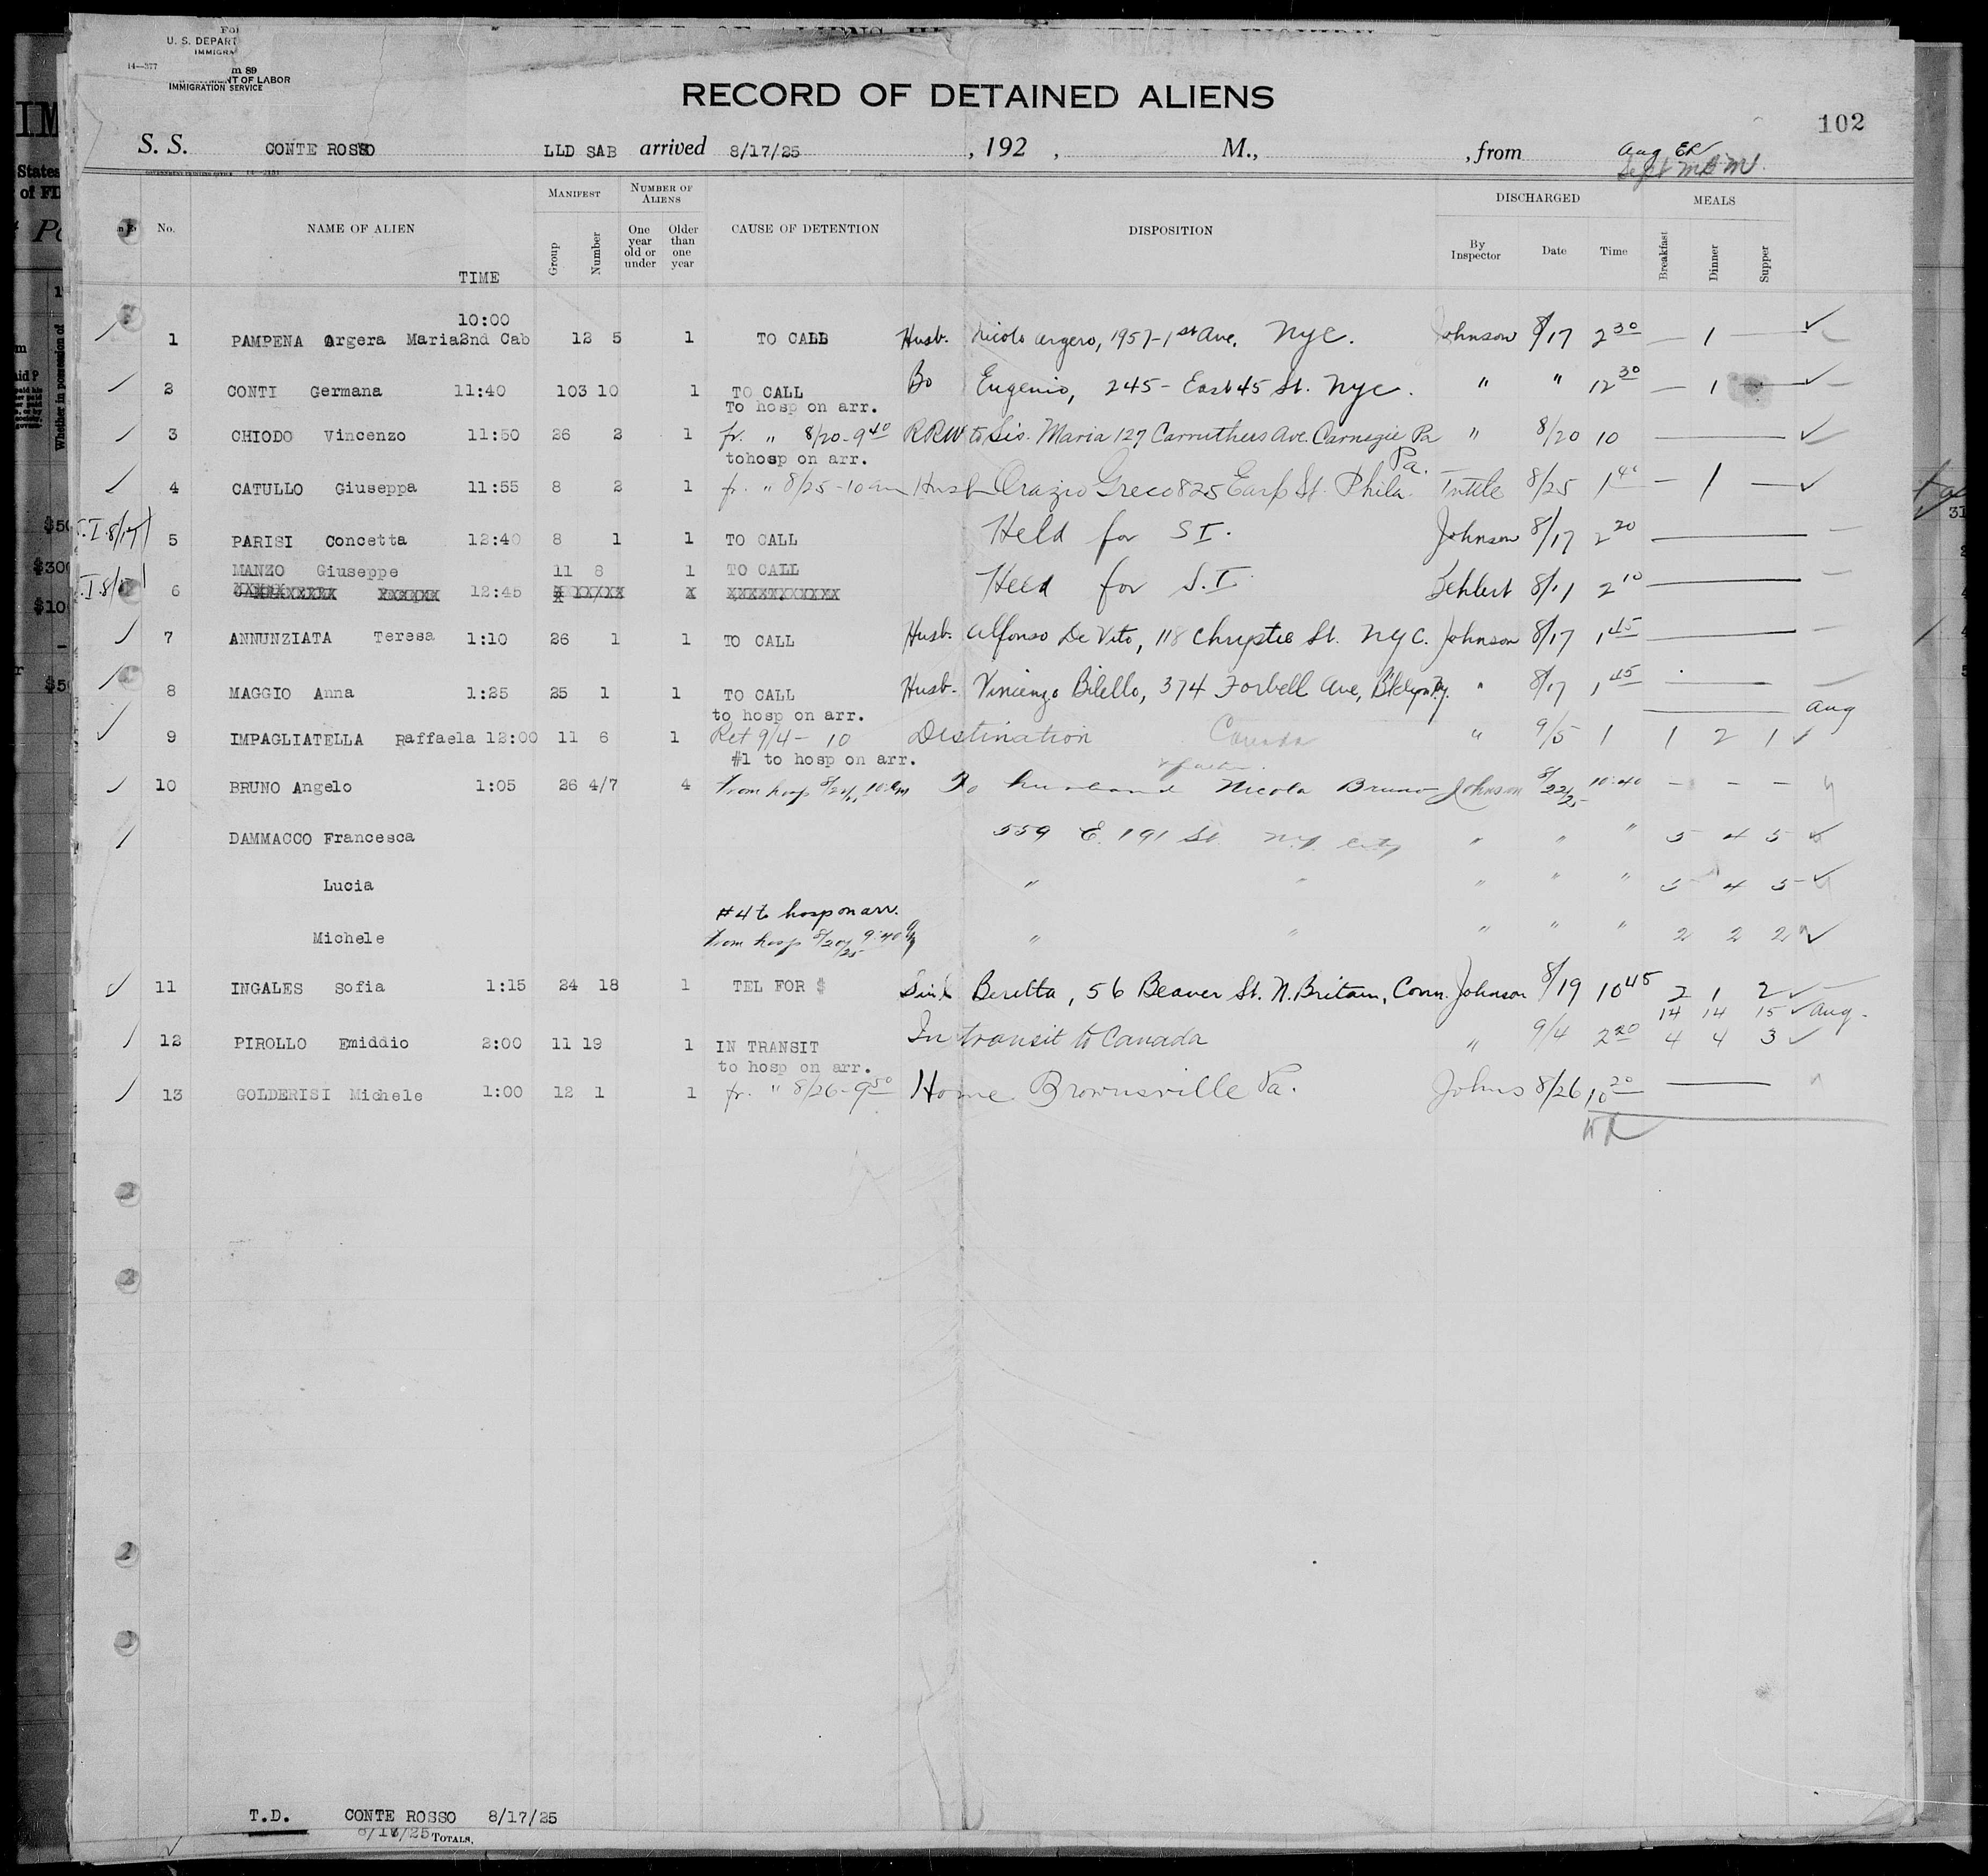 U. S. DEPART
IMMIGRA
14—377
m 89
NT OF LABOR
IMMIGRATION SERVICE
RECORD OF DETAINED ALIENS
102
S. S. CONTE ROSSO LLD SAB arrived 8/17/25, 192 , M., , from Aug ER
Sept
No. NAME OF ALIEN TIME MANIFEST Group Number NUMBER OF ALIENS One year old or under Older than one year CAUSE OF DETENTION DISPOSITION DISCHARGED By Inspector Date Time MEALS Breakfast Dinner Supper
10:00
1 PAMPENA Argera Maria 2nd Cab 12 5 1 TO CALL Husb. Nicolo Argero, 1957-1st Ave. NYC. Johnson 8/17 2 30 — 1 —
2 CONTI Germana 11:40 103 10 1 TO CALL Bo Eugenio, 245- East 45 St. NYC. " " 12 30 — 1 —
To hosp on arr.
3 CHIODO Vincenzo 11:50 26 2 1 fr. " 8/20-9 40 RRW to Sis. Maria 127 Carruthers Ave. Carnegie Pa " 8/20 10
to hosp on arr.
4 CATULLO Giuseppa 11:55 8 2 1 fr. " 8/25-10 am Husb Orazio Greco 825 Earp St. Phila. Pa. Tuttle 8/25 1 40 — 1 —
S.I. 8/17 5 PARISI Concetta 12:40 8 1 1 TO CALL Held for S I. Johnson 8/17 2 20
MANZO Giuseppe 11 8 1 TO CALL
6 12:45 Held for S.I. 2 10
7 ANNUNZIATA Teresa 1:10 26 1 1 TO CALL Husb. Alfonso De Vito, 118 Chrystie St. NYC. Johnson 8/17 1 45
8 MAGGIO Anna 1:25 25 1 1 TO CALL Husb. Vincenzo Bilello, 374 Forbell Ave, Bklyn Ny. " 8/17 1 45
to hosp on arr. Aug
9 IMPAGLIATELLA Raffaela 12:00 11 6 1 Ret 9/4- 10 Destination Canada " 9/5 1 1 2 1
#1 to hosp on arr.
10 BRUNO Angelo 1:05 26 4/7 4 From hosp 8/22/25 10 am To husband & father. Nicola Bruno Johnson 8/22/25 10:40 - - -
DAMMACCO Francesca 559 E. 191 St. N.Y. City " " " 5 4 5
Lucia " " " " " 5 4 5
#4 to hosp on arr.
Michele From hosp 8/20/25 9:40 " " " " " 2 2 2
11 INGALES Sofia 1:15 24 18 1 TEL FOR $ Beretta, 56 Beaver St. N. Britain, Conn. Johnson 8/19 10 45 2 1 2
14 14 15 Aug.
12 PIROLLO Emiddio 2:00 11 19 1 IN TRANSIT In transit to Canada " 9/4 2 20 4 4 3
to hosp on arr.
13 GOLDERISI Michele 1:00 12 1 1 fr. " 8/26-9 50 Home Brownsville Pa. Johns 8/26 10 20
T.D. CONTE ROSSO 8/17/25
8/17/25 TOTALS,